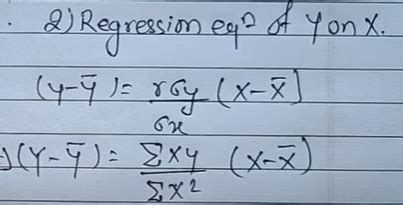 . 2) Regression eqⁿ of Y on X.
(y-ȳ) = rσy/σx (x-x̄)
(Y-Ȳ) = ΣXY/ΣX² (X-X̄)